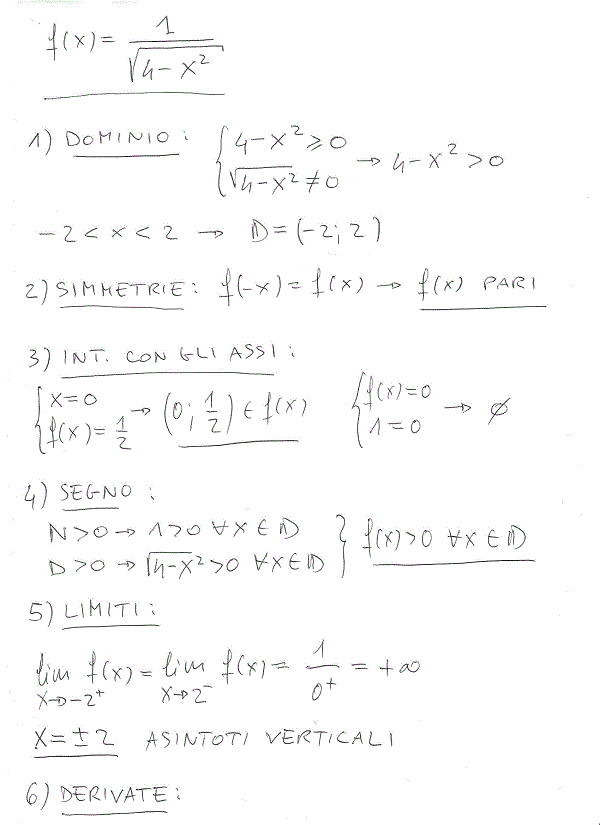 f(x) = 1/√(4-x²)
1) DOMINIO: { 4-x² ≥ 0 ; √(4-x²) ≠ 0 → 4-x² > 0
-2 < x < 2 → D = (-2; 2)
2) SIMMETRIE: f(-x) = f(x) → f(x) PARI
3) INT. CON GLI ASSI:
{ x=0 ; f(x) = 1/2 → (0; 1/2) ∈ f(x) { f(x)=0 ; 1=0 → ∅
4) SEGNO:
N>0 → 1>0 ∀x ∈ D
D>0 → √(4-x²) >0 ∀x∈D } f(x)>0 ∀x ∈ D
5) LIMITI:
lim x→-2⁺ f(x) = lim x→2⁻ f(x) = 1/0⁺ = +∞
x = ±2 ASINTOTI VERTICALI
6) DERIVATE: